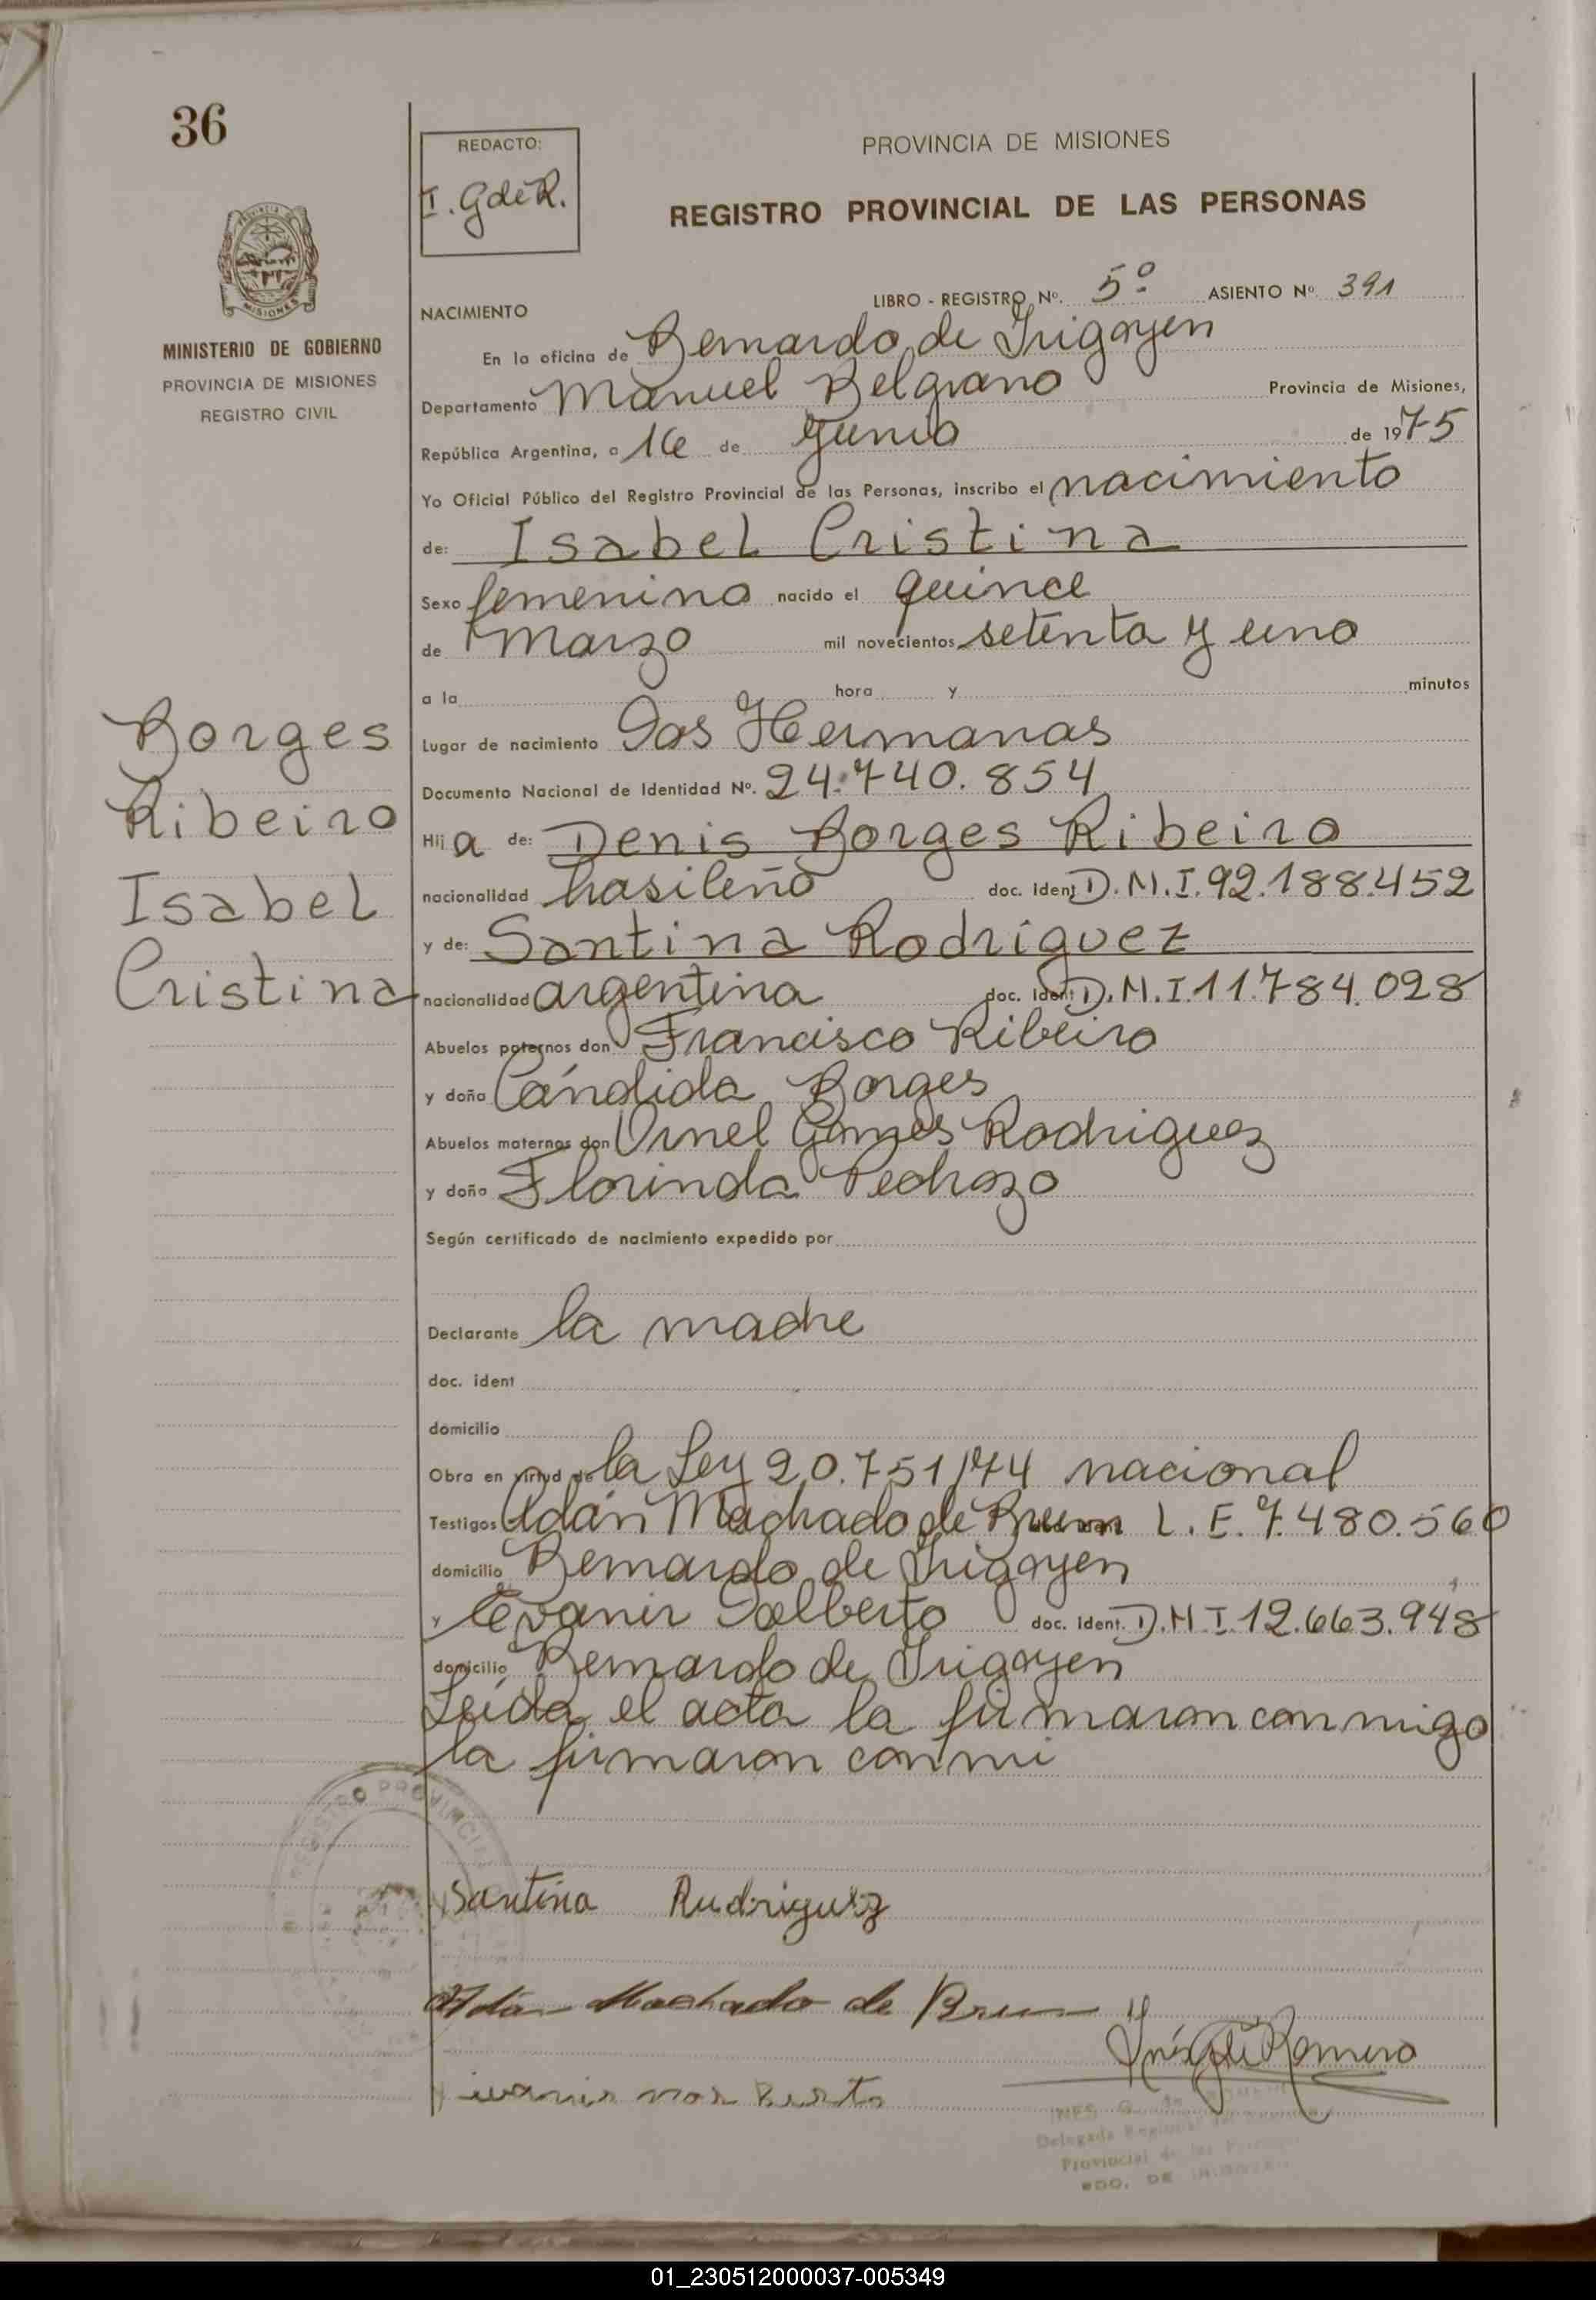 36
REDACTO:
I. GdeR.
PROVINCIA DE MISIONES
REGISTRO PROVINCIAL DE LAS PERSONAS
MISIONES
MINISTERIO DE GOBIERNO
PROVINCIA DE MISIONES
REGISTRO CIVIL
NACIMIENTO
LIBRO - REGISTRO Nº. 5º ASIENTO Nº. 391
En la oficina de Bernardo de Irigoyen
Departamento Manuel Belgrano Provincia de Misiones,
República Argentina, a 16 de Junio de 1975
Yo Oficial Público del Registro Provincial de las Personas, inscribo el nacimiento
de: Isabel Cristina
Sexo femenino nacido el quince
de Marzo mil novecientos setenta y uno
a la hora y minutos
Borges
Ribeiro
Isabel
Cristina
Lugar de nacimiento Dos Hermanas
Documento Nacional de Identidad Nº. 24.740.854
Hija de: Denis Borges Ribeiro
nacionalidad brasileño doc. Ident D.N.I. 92.188.452
y de: Santina Rodriguez
nacionalidad argentina doc. Ident D.N.I. 11.784.028
Abuelos paternos don Francisco Ribeiro
y doña Cándida Borges
Abuelos maternos don Ornel Gomes Rodriguez
y doña Florinda Pedrozo
Según certificado de nacimiento expedido por
Declarante la madre
doc. ident
domicilio
Obra en virtud de la Ley 20.751/74 nacional
Testigos Adán Machado de Brum L.E. 7.480.560
domicilio Bernardo de Irigoyen
y Evanir Dalberto doc. ident. D.N.I. 12.663.948
domicilio Bernardo de Irigoyen
Leída el acta la firmaron conmigo
la firmaron conmi
REGISTRO PROVINCIAL
Santina Rudriguez
Adán Machado de Brum
Inés G de Romero
INES G. de
Delegada Regional del
Provincial de las Personas
BDO. DE IRIGOYEN
01_230512000037-005349